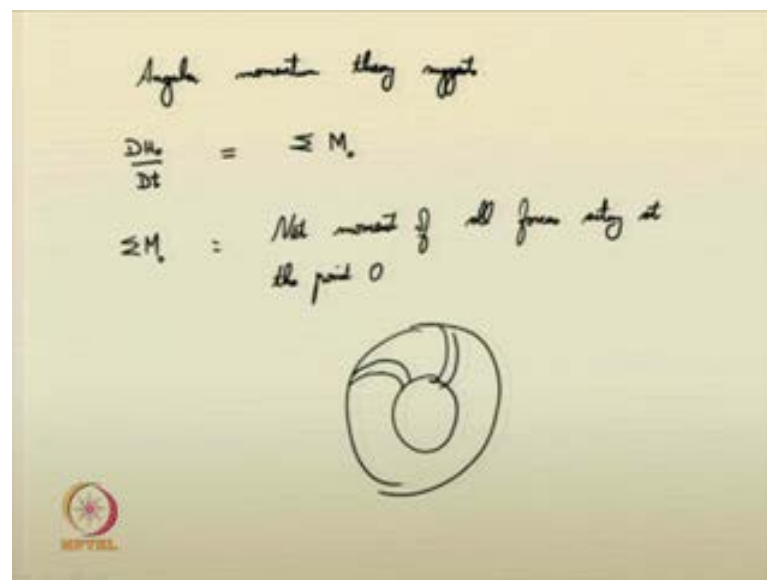 Angular momentum theory suggests
DH₀/Dt = Σ M₀
ΣM₀ : Net moment of all forces acting at
the point O
NPTEL